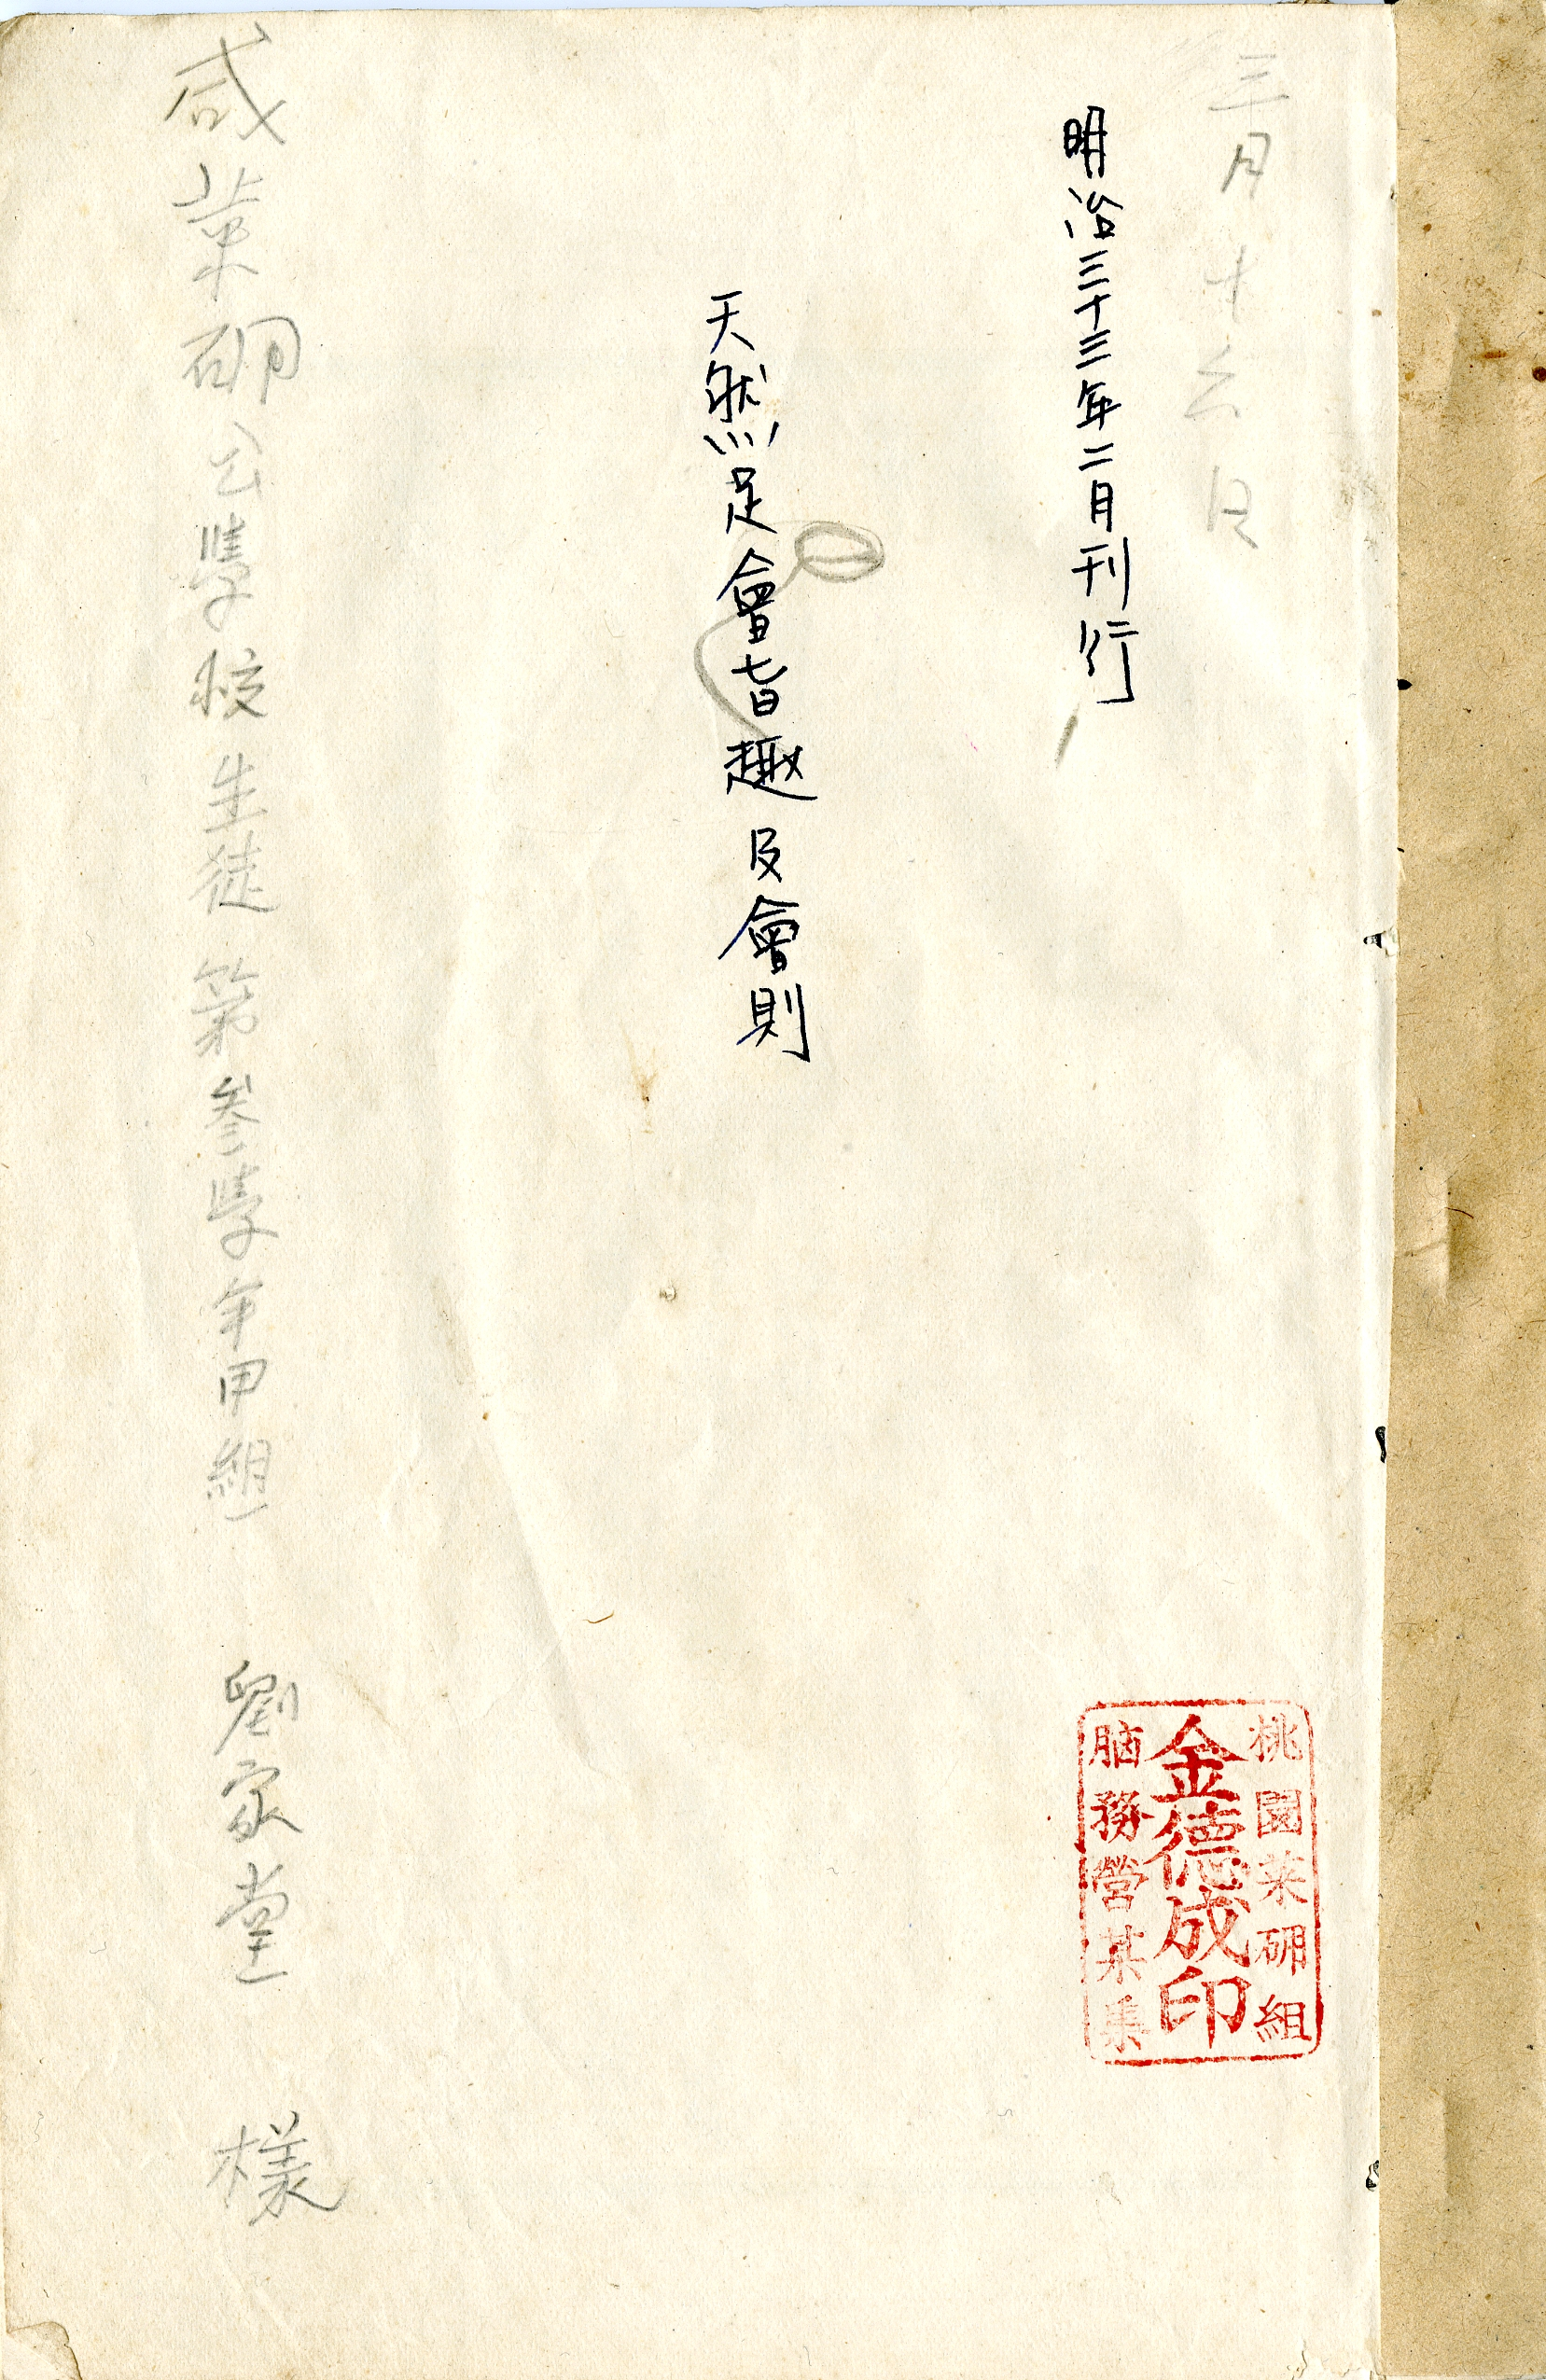 三月十六日
明治三十三年二月刊行
天然足會旨趣及會則
桃園菜硼組
金德成印
脑務營
咸菜硼公學校生徒第参學年甲組 劉家堂 樣